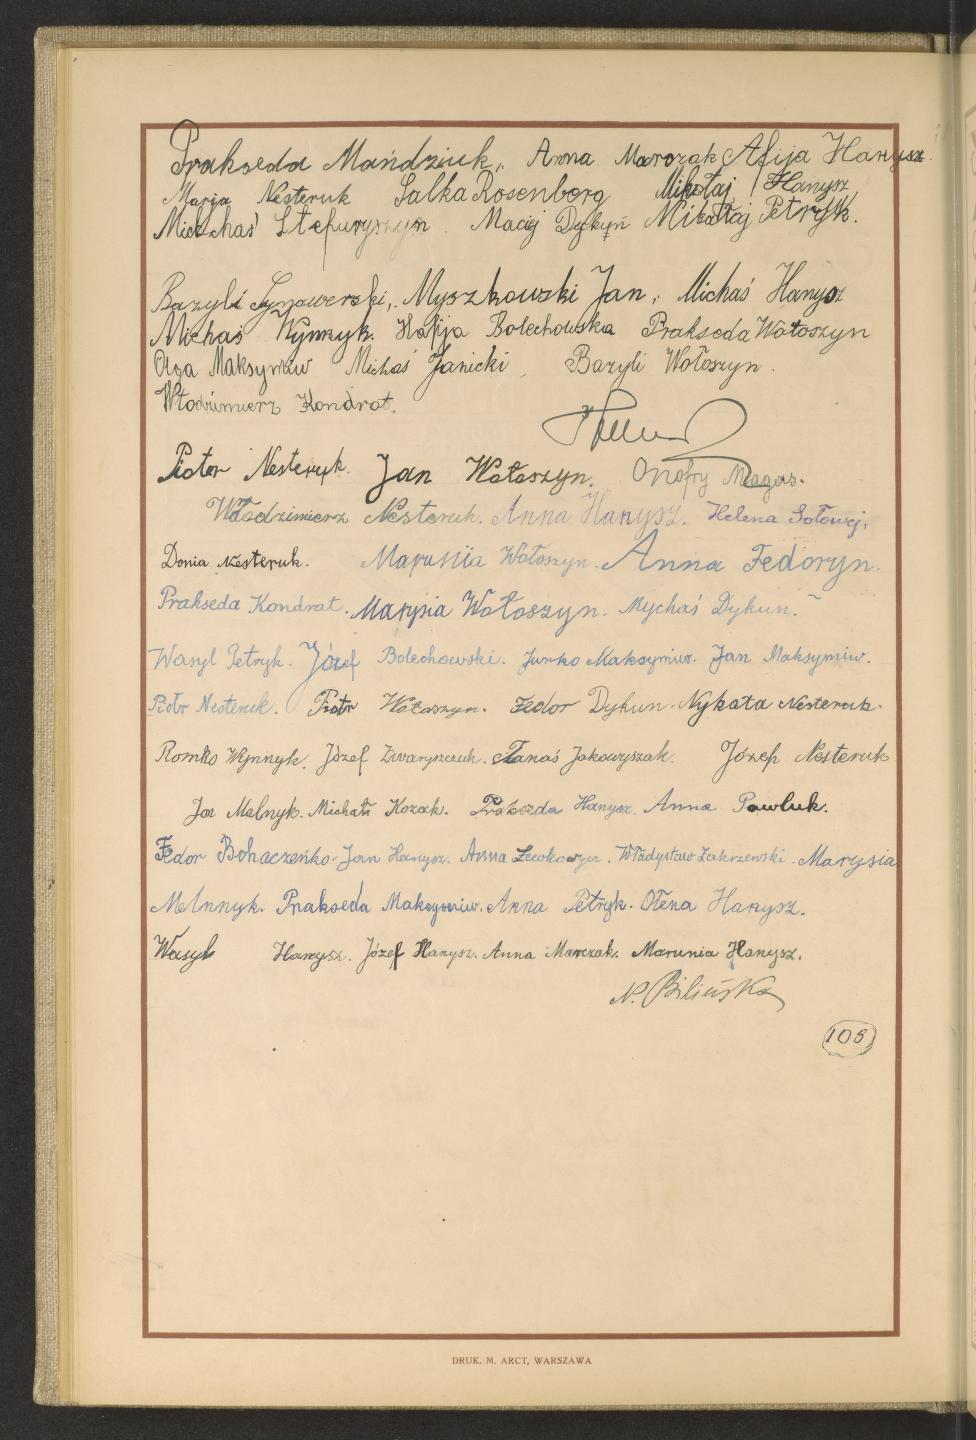 Prakseda Mańdziuk, Anna Marczak Afija Hanysz
Marja Nesteruk Salka Rosenberg Mikołaj Hanysz,
Michaś Stefuryszyn Maciej Dykyń Mikołaj Petryk.
Bazyli Myszkowski Jan, Michaś Hanysz
Michaś Wynnyk. Hafija Bolechowska Prakseda Wołoszyn
Olga Maksymiw Michaś Janicki, Bazyli Wołoszyn.
Włodzimierz Kondrat.
Piotr Nesteryk. Jan Wołoszyn. Onofry Magas.
Włodzimierz Nesteruk. Anna Hanysz. Helena Sołowej,
Donia Nesteruk. Marunia Wołoszyn. Anna Fedoryn.
Prakseda Kondrat. Marysia Wołoszyn. Mychaś Dykun.
Wasyl Petryk. Józef Bolechowski. Jurko Maksymiw. Jan Maksymiw.
Piotr Nesteruk. Piotr Wołoszyn. Fedor Dykun. Nykoła Nesteruk.
Romko Wynnyk. Józef Iwaryszczuk. Tanaś Jakowyszak. Józef Nesteruk
Jan Melnyk. Michał Kozak. Prakseda Hanysz. Anna Pawluk.
Fedor Bohaczeńko. Jan Hanysz. Anna Lewkowycz. Władysław Zakrzewski. Marysia
Melnnyk. Prakseda Maksymiw. Anna Petryk. Ołena Hanysz.
Wasyl Hanysz. Józef Hanysz. Anna Marczak. Marunia Hanysz.
N. Bilińska
108
DRUK. M. ARCT, WARSZAWA